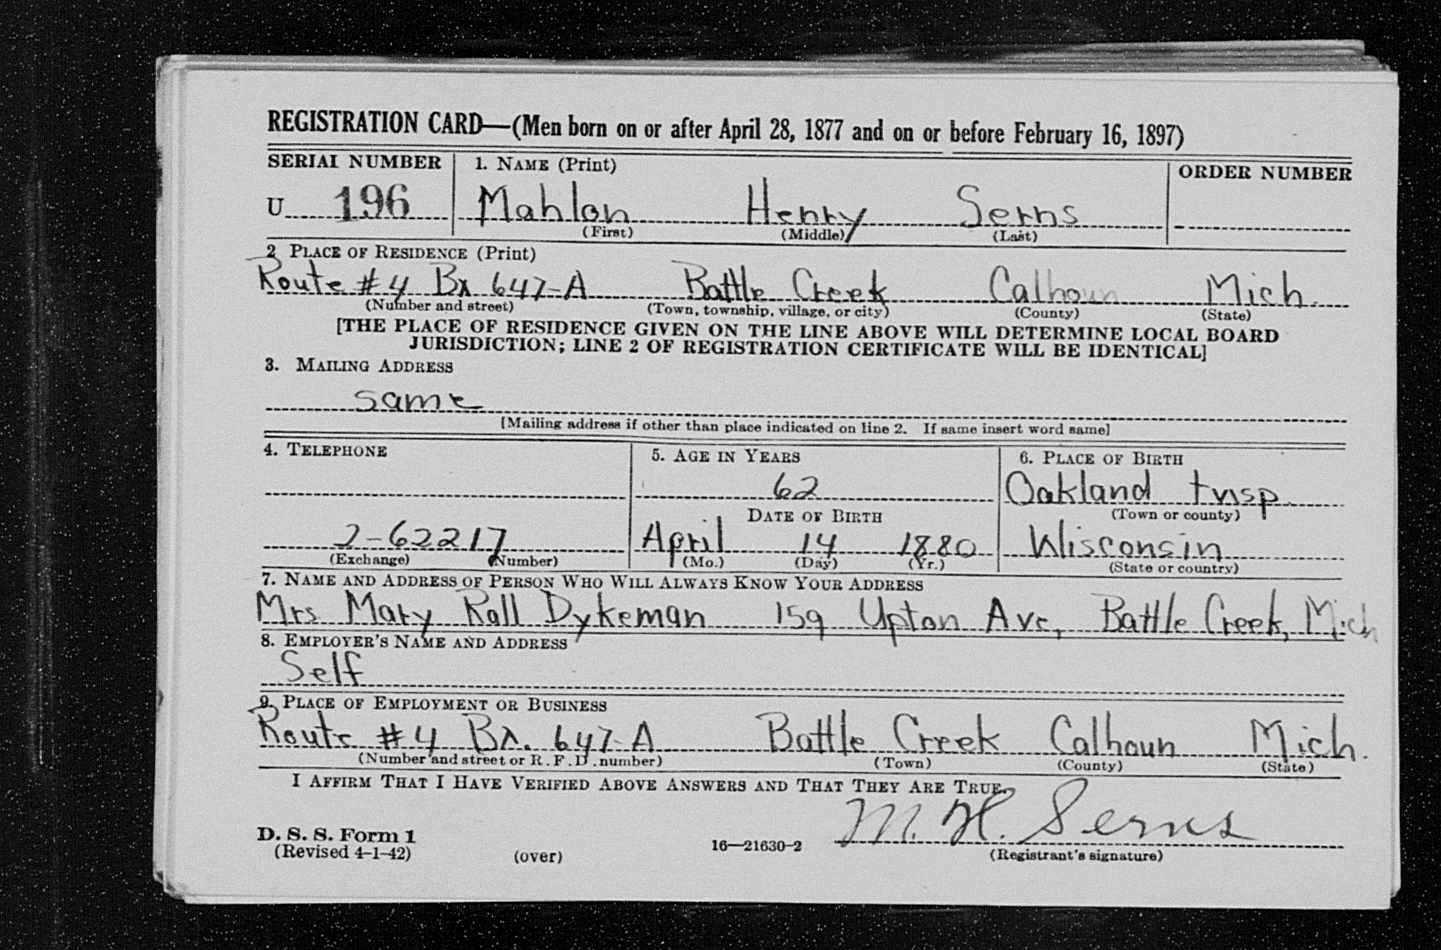 REGISTRATION CARD—(Men born on or after April 28, 1877 and on or before February 16, 1897)
SERIAL NUMBER 1. NAME (Print) ORDER NUMBER
U 196 Mahlon Henry Serns
(First) (Middle) (Last)
2 PLACE OF RESIDENCE (Print)
Route #4 Bx 647-A Battle Creek Calhoun Mich.
(Number and street) (Town, township, village, or city) (County) (State)
[THE PLACE OF RESIDENCE GIVEN ON THE LINE ABOVE WILL DETERMINE LOCAL BOARD
JURISDICTION; LINE 2 OF REGISTRATION CERTIFICATE WILL BE IDENTICAL]
3. MAILING ADDRESS
same
[Mailing address if other than place indicated on line 2. If same insert word same]
4. TELEPHONE 5. AGE IN YEARS 6. PLACE OF BIRTH
62 Oakland twsp.
DATE OF BIRTH (Town or county)
2-62217 April 14 1880 Wisconsin
(Exchange) (Number) (Mo.) (Day) (Yr.) (State or country)
7. NAME AND ADDRESS OF PERSON WHO WILL ALWAYS KNOW YOUR ADDRESS
Mrs Mary Roll Dykeman 159 Upton Ave, Battle Creek, Mich
8. EMPLOYER'S NAME AND ADDRESS
Self
9. PLACE OF EMPLOYMENT OR BUSINESS
Route #4 Bx. 647-A Battle Creek Calhoun Mich.
(Number and street or R. F. D. number) (Town) (County) (State)
I AFFIRM THAT I HAVE VERIFIED ABOVE ANSWERS AND THAT THEY ARE TRUE.
M. H. Serns
D. S. S. Form 1
(Revised 4-1-42) (over) 16—21630-2 (Registrant's signature)